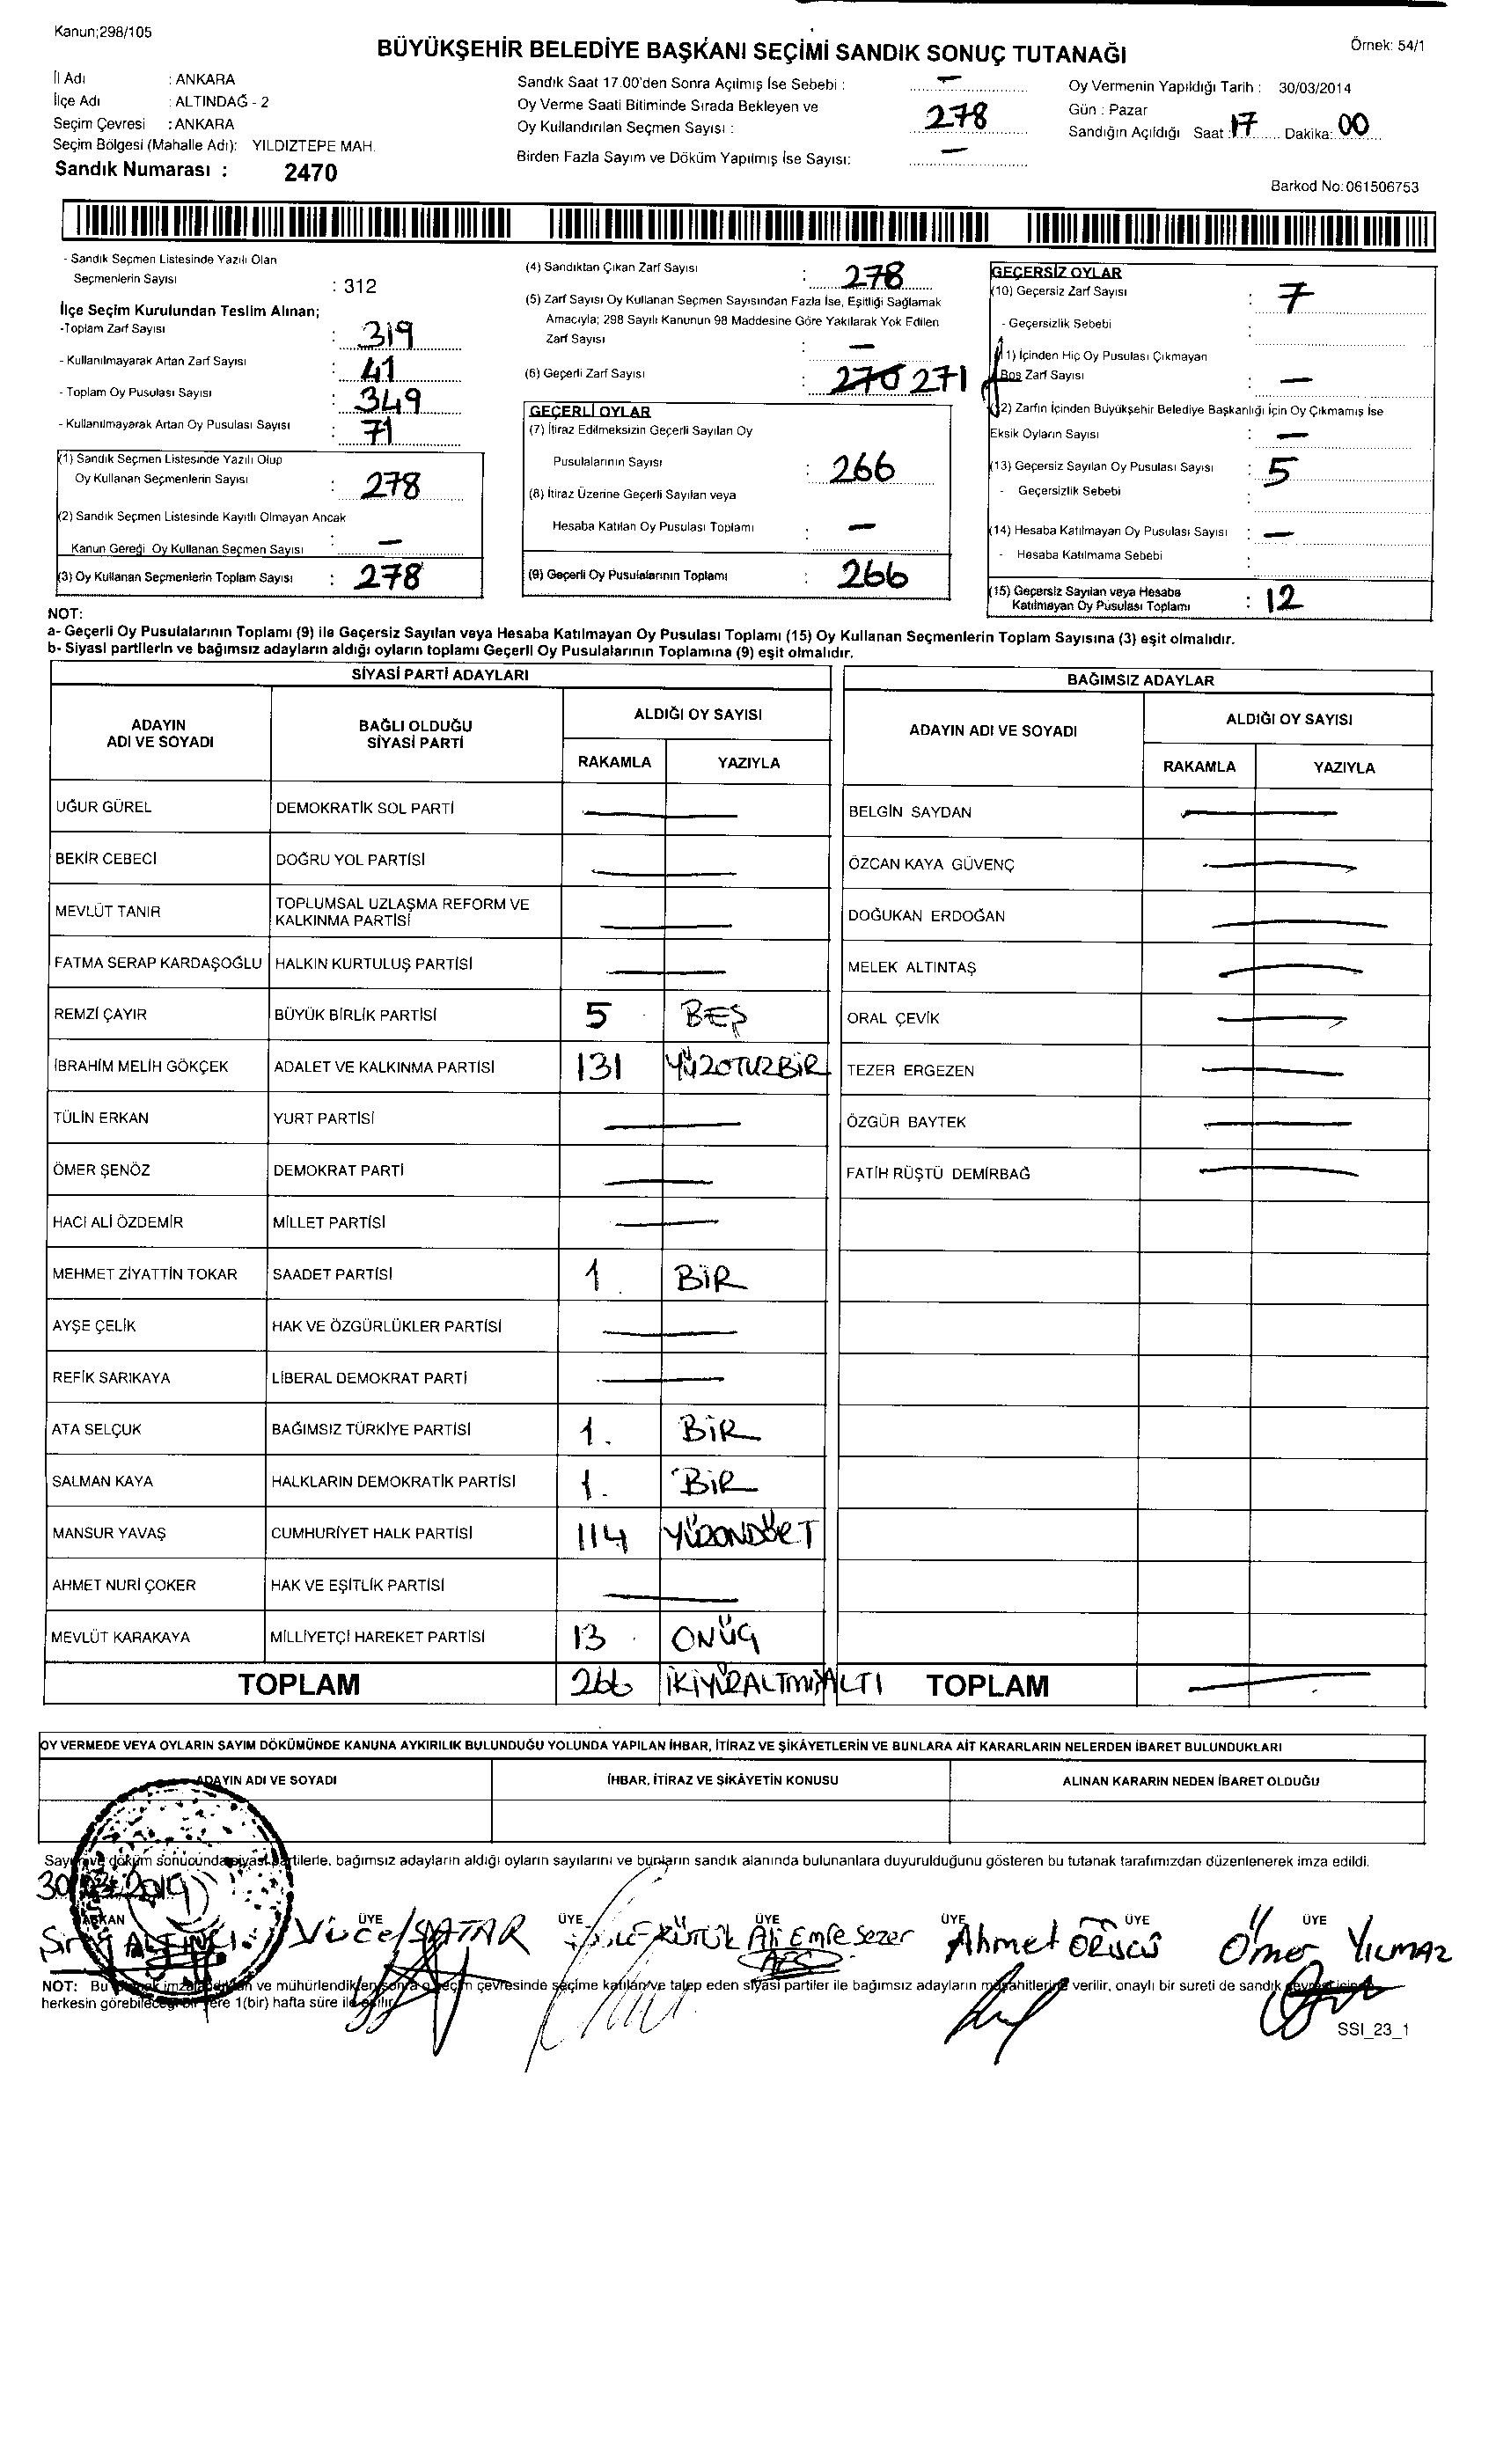 Kanun;298/105
BÜYÜKŞEHİR BELEDİYE BAŞKANI SEÇİMİ SANDIK SONUÇ TUTANAĞI
Örnek: 54/1
İl Adı : ANKARA
İlçe Adı : ALTINDAĞ - 2
Seçim Çevresi : ANKARA
Seçim Bölgesi (Mahalle Adı): YILDIZTEPE MAH.
Sandık Numarası : 2470
Sandık Saat 17.00'den Sonra Açılmış İse Sebebi : —
Oy Verme Saati Bitiminde Sırada Bekleyen ve
Oy Kullandırılan Seçmen Sayısı : 278
Birden Fazla Sayım ve Döküm Yapılmış İse Sayısı: —
Oy Vermenin Yapıldığı Tarih : 30/03/2014
Gün : Pazar
Sandığın Açıldığı Saat : 17 Dakika: 00
Barkod No:061506753
- Sandık Seçmen Listesinde Yazılı Olan
Seçmenlerin Sayısı : 312
İlçe Seçim Kurulundan Teslim Alınan;
-Toplam Zarf Sayısı : 319
- Kullanılmayarak Artan Zarf Sayısı : 41
- Toplam Oy Pusulası Sayısı : 349
- Kullanılmayarak Artan Oy Pusulası Sayısı : 71
(1) Sandık Seçmen Listesinde Yazılı Olup
Oy Kullanan Seçmenlerin Sayısı : 278
(2) Sandık Seçmen Listesinde Kayıtlı Olmayan Ancak
Kanun Gereği Oy Kullanan Seçmen Sayısı : —
(3) Oy Kullanan Seçmenlerin Toplam Sayısı : 278
(4) Sandıktan Çıkan Zarf Sayısı : 278
(5) Zarf Sayısı Oy Kullanan Seçmen Sayısından Fazla İse, Eşitliği Sağlamak
Amacıyla; 298 Sayılı Kanunun 98 Maddesine Göre Yakılarak Yok Edilen
Zarf Sayısı : —
(6) Geçerli Zarf Sayısı : 270 271
GEÇERLİ OYLAR
(7) İtiraz Edilmeksizin Geçerli Sayılan Oy
Pusulalarının Sayısı : 266
(8) İtiraz Üzerine Geçerli Sayılan veya
Hesaba Katılan Oy Pusulası Toplamı : —
(9) Geçerli Oy Pusulalarının Toplamı : 266
GEÇERSİZ OYLAR
(10) Geçersiz Zarf Sayısı : 7
- Geçersizlik Sebebi :
(11) İçinden Hiç Oy Pusulası Çıkmayan
Boş Zarf Sayısı : —
(12) Zarfın İçinden Büyükşehir Belediye Başkanlığı İçin Oy Çıkmamış İse
Eksik Oyların Sayısı : —
(13) Geçersiz Sayılan Oy Pusulası Sayısı : 5
- Geçersizlik Sebebi :
(14) Hesaba Katılmayan Oy Pusulası Sayısı : —
- Hesaba Katılmama Sebebi :
(15) Geçersiz Sayılan veya Hesaba
Katılmayan Oy Pusulası Toplamı : 12
NOT:
a- Geçerli Oy Pusulalarının Toplamı (9) ile Geçersiz Sayılan veya Hesaba Katılmayan Oy Pusulası Toplamı (15) Oy Kullanan Seçmenlerin Toplam Sayısına (3) eşit olmalıdır.
b- Siyasi partilerin ve bağımsız adayların aldığı oyların toplamı Geçerli Oy Pusulalarının Toplamına (9) eşit olmalıdır.
SİYASİ PARTİ ADAYLARI
ADAYIN
ADI VE SOYADI
BAĞLI OLDUĞU
SİYASİ PARTİ
ALDIĞI OY SAYISI
RAKAMLA YAZIYLA
UĞUR GÜREL DEMOKRATİK SOL PARTİ —
BEKİR CEBECİ DOĞRU YOL PARTİSİ —
MEVLÜT TANIR TOPLUMSAL UZLAŞMA REFORM VE
KALKINMA PARTİSİ —
FATMA SERAP KARDAŞOĞLU HALKIN KURTULUŞ PARTİSİ —
REMZİ ÇAYIR BÜYÜK BİRLİK PARTİSİ 5 BEŞ
İBRAHİM MELİH GÖKÇEK ADALET VE KALKINMA PARTİSİ 131 YÜZOTUZBİR
TÜLİN ERKAN YURT PARTİSİ —
ÖMER ŞENÖZ DEMOKRAT PARTİ —
HACI ALİ ÖZDEMİR MİLLET PARTİSİ —
MEHMET ZİYATTİN TOKAR SAADET PARTİSİ 1 BİR
AYŞE ÇELİK HAK VE ÖZGÜRLÜKLER PARTİSİ —
REFİK SARIKAYA LİBERAL DEMOKRAT PARTİ —
ATA SELÇUK BAĞIMSIZ TÜRKİYE PARTİSİ 1. BİR
SALMAN KAYA HALKLARIN DEMOKRATİK PARTİSİ 1. BİR
MANSUR YAVAŞ CUMHURİYET HALK PARTİSİ 114 YÜZONDÖRT
AHMET NURİ ÇOKER HAK VE EŞİTLİK PARTİSİ —
MEVLÜT KARAKAYA MİLLİYETÇİ HAREKET PARTİSİ 13 ONÜÇ
TOPLAM 266 İKİYÜZALTMIŞALTI
BAĞIMSIZ ADAYLAR
ADAYIN ADI VE SOYADI
ALDIĞI OY SAYISI
RAKAMLA YAZIYLA
BELGİN SAYDAN —
ÖZCAN KAYA GÜVENÇ —
DOĞUKAN ERDOĞAN —
MELEK ALTINTAŞ —
ORAL ÇEVİK —
TEZER ERGEZEN —
ÖZGÜR BAYTEK —
FATİH RÜŞTÜ DEMİRBAĞ —
TOPLAM —
OY VERMEDE VEYA OYLARIN SAYIM DÖKÜMÜNDE KANUNA AYKIRILIK BULUNDUĞU YOLUNDA YAPILAN İHBAR, İTİRAZ VE ŞİKÂYETLERİN VE BUNLARA AİT KARARLARIN NELERDEN İBARET BULUNDUKLARI
ADAYIN ADI VE SOYADI
İHBAR, İTİRAZ VE ŞİKÂYETİN KONUSU
ALINAN KARARIN NEDEN İBARET OLDUĞU
Sayım ve döküm sonucunda siyasi partilerle, bağımsız adayların aldığı oyların sayılarını ve bunların sandık alanında bulunanlara duyurulduğunu gösteren bu tutanak tarafımızdan düzenlenerek imza edildi.
BAŞKAN ÜYE ÜYE ÜYE ÜYE ÜYE ÜYE
Yücel SATAR
KÜTÜK
Ali Emre Sezer
Ahmet ÖRÜCÜ
Ömer YILMAZ
NOT: Bu tutanak imzalandıktan ve mühürlendikten sonra o seçim çevresinde seçime katılan ve talep eden siyasi partiler ile bağımsız adayların müşahitlerine verilir, onaylı bir sureti de sandık çevresi içinde
herkesin görebileceği bir yere 1(bir) hafta süre ile asılır.
SSI_23_1